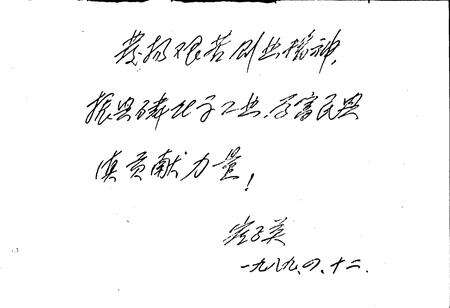 发扬艰苦创业精神,
振兴磷化学工业,为富民兴
滇贡献力量!
崔子英
一九八九.四.十二.